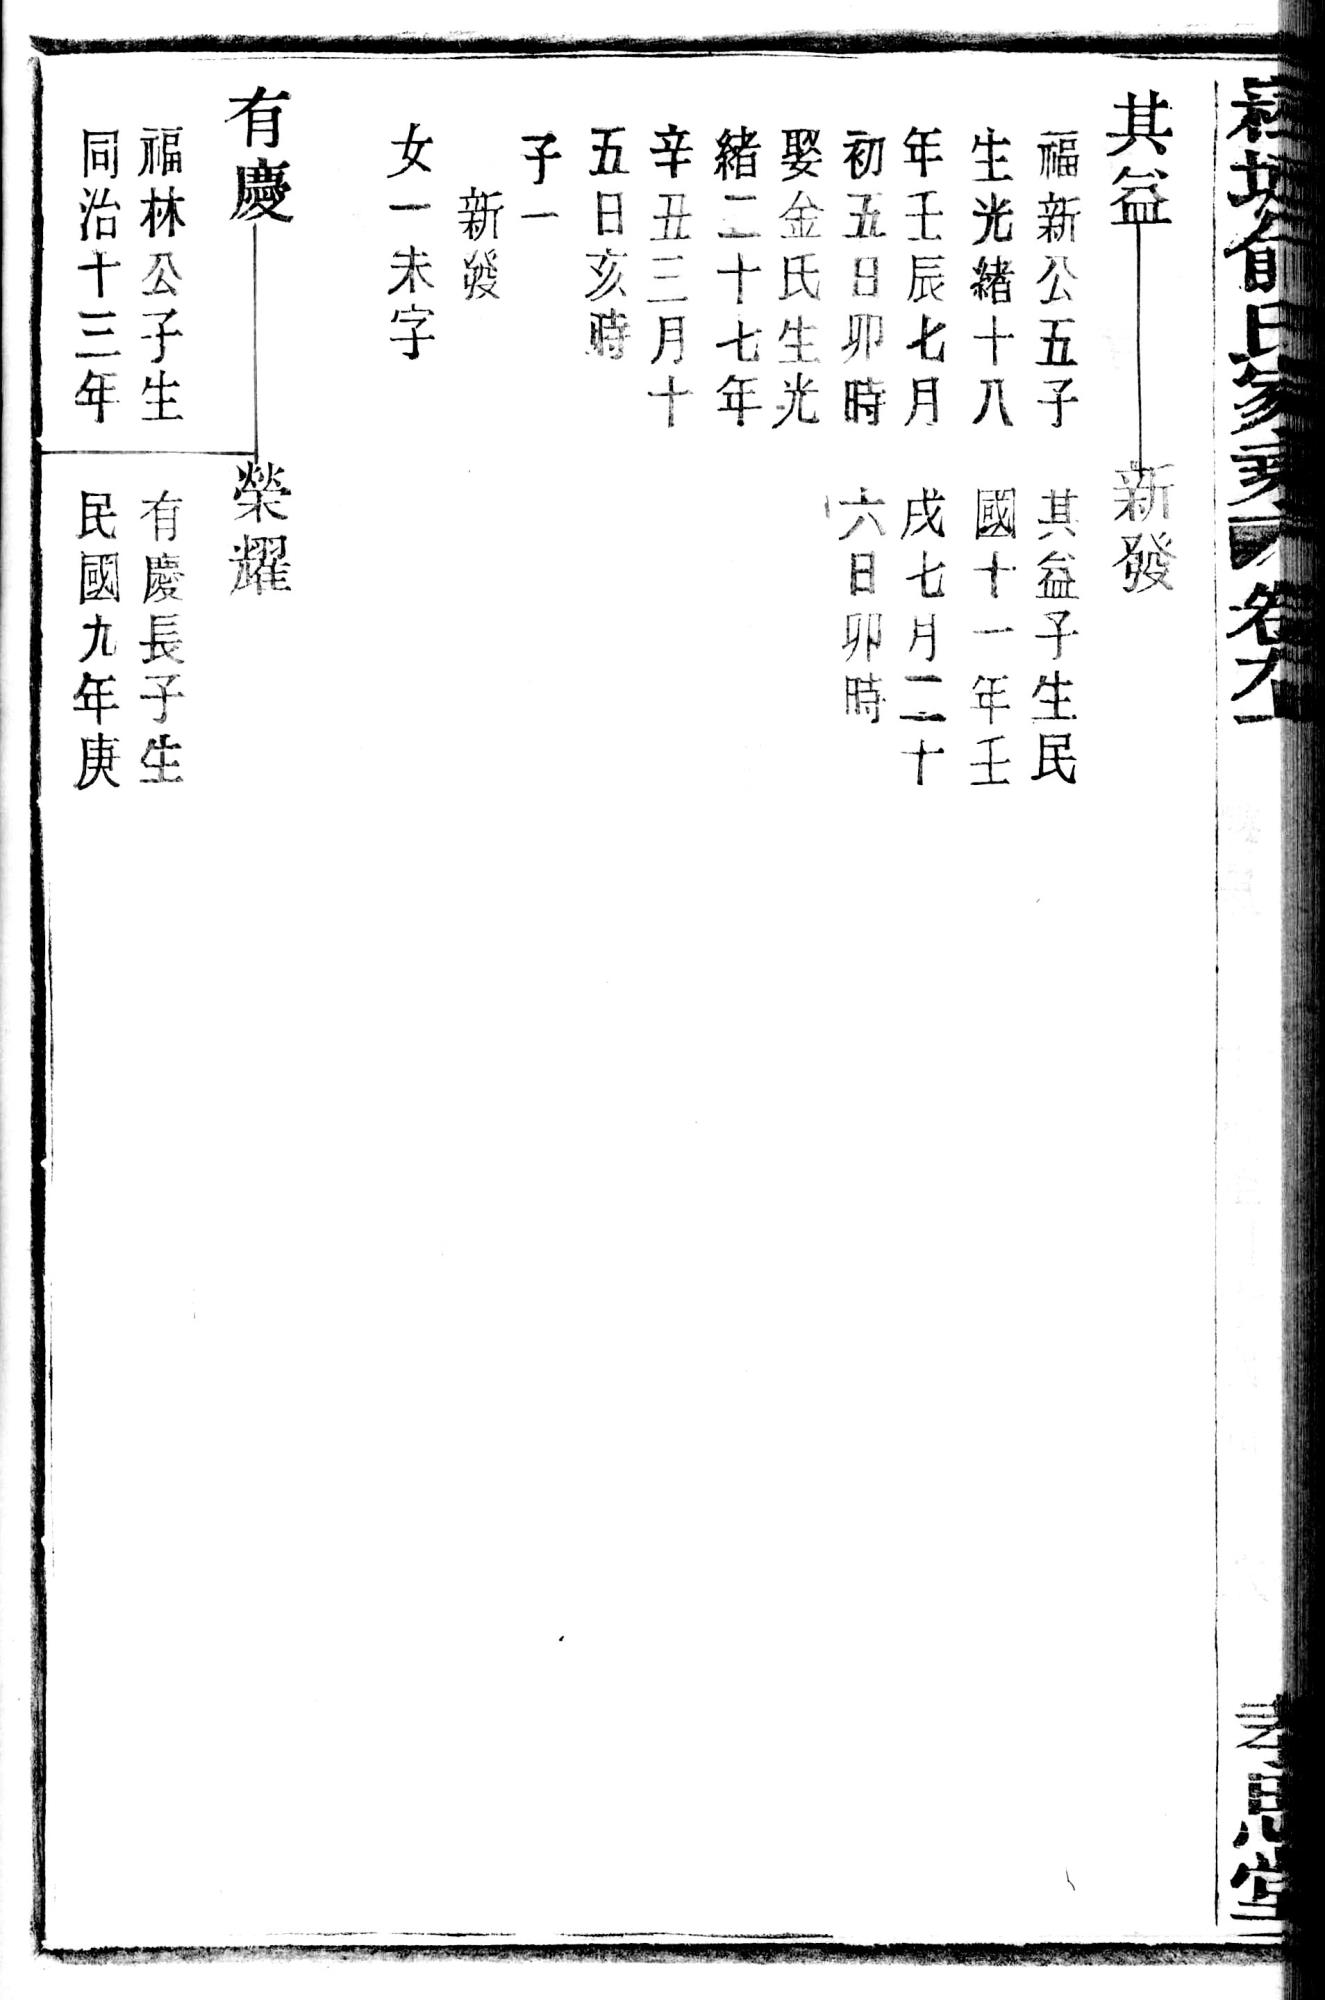 氏家乘
卷九
孝思堂
其益
福新公五子
生光緒十八
年壬辰七月
初五日卯時
娶金氏生光
緒二十七年
辛丑三月十
五日亥時
子一
新發
女一未字
新發
其益子生民
國十一年壬
戌七月二十
六日卯時
有慶
福林公子生
同治十三年
榮耀
有慶長子生
民國九年庚